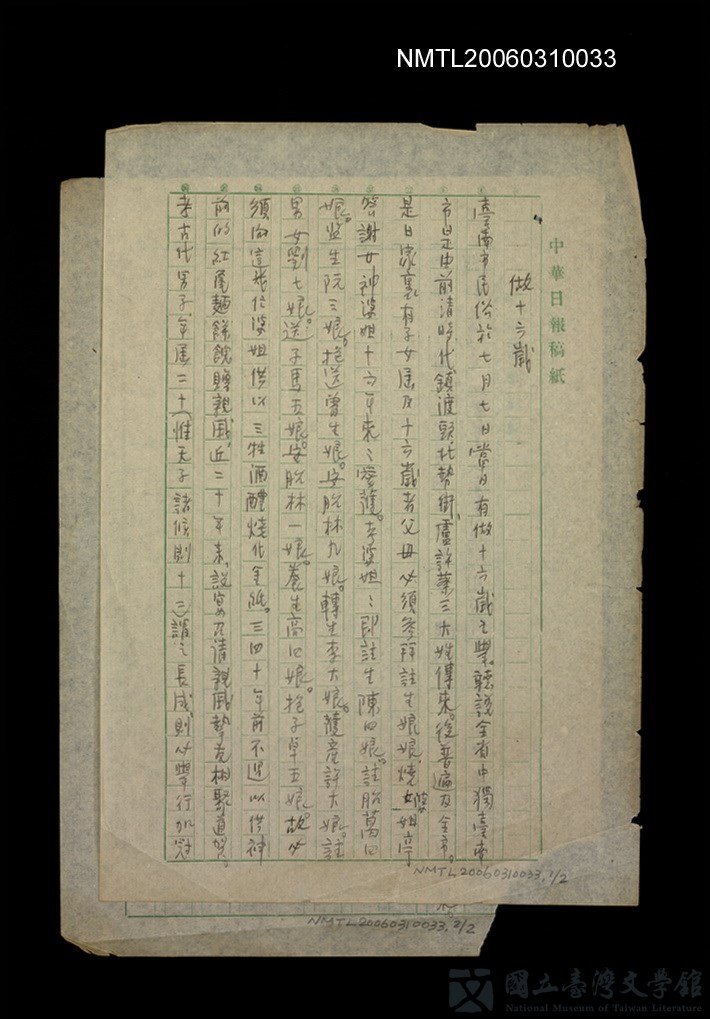 NMTL20060310033
中華日報稿紙
做十六歲
臺南市民俗於七月七日當日有做十六歲之舉。聽說全省中獨臺南
市且是由前清時代鎮渡頭北勢街盧許葉三大姓傳來。後普遍及全市。
是日家裏有子女屆及十六歲者父母必須參拜註生娘娘，燒婆姐亭
答謝女神婆姐十六年來之愛護。本婆姐之即註生陳四娘。註胎萬四
娘。監生阮三娘。抱送曾生娘。安胎林九娘。轉生李大娘。護產許大娘。註
男女劉七娘。送子馬五娘。安胎林一娘。養生高四娘。抱子卓五娘。故必
須向這幾位婆姐供以三牲酒醴燒化金紙。三四十年前不過以供神
前的紅尾麵餘餽贈親戚，近二十年來，設宴乃請親戚摯友相聚道賀。
考古代男子年屆二十（惟天子諸侯則十二）謂之長成則必舉行加冠
NMTL20060310033, 1/2
NMTL20060310033, 2/2
國立臺灣文學館
National Museum of Taiwan Literature